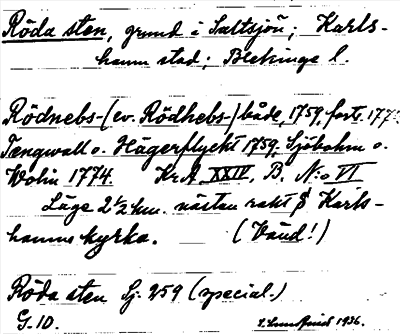 Röda sten, grund i Saltsjön; Karls-
hamn stad; Blekinge l.
Rödnebs-(ev. Rödhebs-)både, 1759, forts. 177
Tengwall o. Hägerflycht 1759, Sjöbohm o.
Wolin 1774. Kr.A XXIV, B. N:o VI
Läge 2½ km. nästan rakt S Karls-
hamns kyrka. (Vänd!)
Röda sten Sj. 259 (special.)
G. 10. 1936.